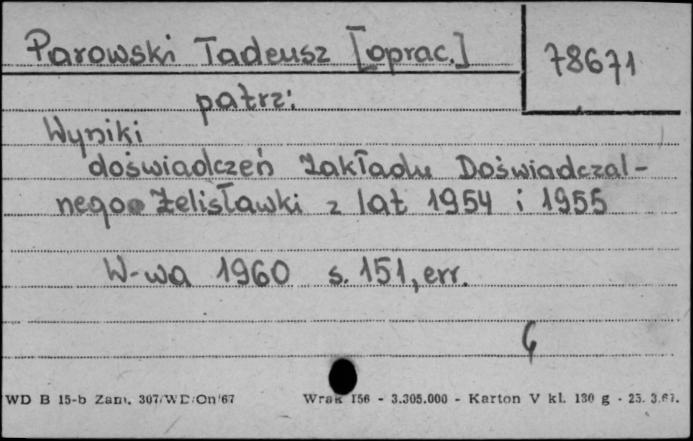 Parowski Tadeusz [oprac.]
78671
patrz:
Wyniki
doświadczeń Zakładu Doświadczal-
nego Żelisławki z lat 1954 i 1955
W-wa 1960 s. 151, err.
WD B 15-b Zam. 307/WD/On/67
Wrak 156 - 3.305.000 - Karton V kl. 130 g - 23. 3.67.